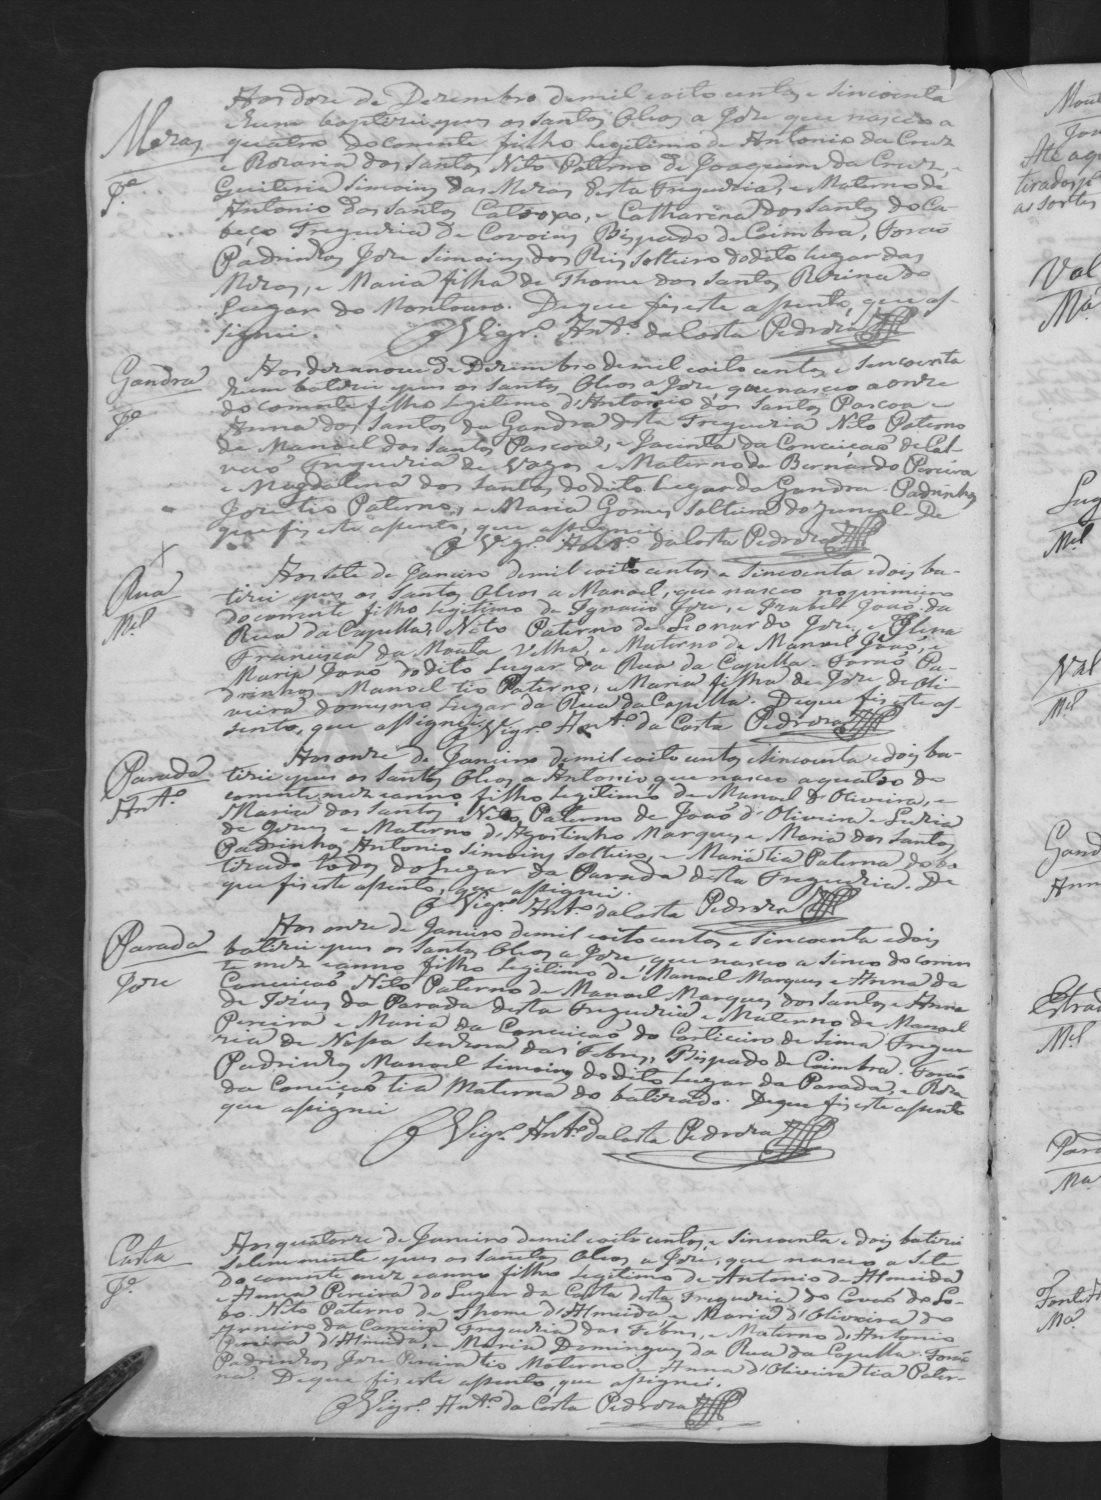 Meras
Jᵉ
Aos doze de Dezembro de mil oito centos e sincoenta
e hum baptizei e pus os santos Oleos a Joze que nasceo a
quatro do corrente filho legitimo de Antonio da Cruz
e Rozaria dos Santos Nêto Paterno de Joaquim da Cruz, e
Guiteria Simoins das Meras desta Freguezia, e Materno de
Antonio dos Santos, e Catharina dos Santos do Ca-
beço Freguezia de Covoins Bispado de Coimbra, Forão
Padrinhos Joze Simoins dos Reis solteiro do dito lugar das
Meras, e Maria filha de Thome dos Santos do
Lugar do Montouro. De que fis este assento, que as-
signei. O Vigrº. Antº. da Costa Pedroza
Gandra
Jᵉ
Aos dezanove de Dezembro de mil oito centos, e sincoenta
e hum batizei e pus os Santos Oleos a Joze, que nasceo a onze
do corrente filho legitimo d'Antonio dos Santos Pascoa e
Anna dos Santos da Gandra desta Freguezia Nêto Paterno
de Manoel dos Santos Pascoa, e Jacinta da Conceição de Cal-
vão Freguezia de Vagos e Materno de Bernardo Pereira
e Magdalena dos Santos do dito Lugar da Gandra. Padrinhos
Joze tio Paterno, e Maria Gomes solteira do De
que fis este assento, que assignei.
O Vigrº. Antº. da Costa Pedroza
Rua
Mᵉˡ
Aos sete de Janeiro de mil oito centos, e sincoenta e dois ba-
tizei e pus os Santos Oleos a Manoel, que nasceo no primeiro
do corrente filho legitimo de Ignacio Joze, e Izabel João da
Rua da Capella, Nêto Paterno de Leonardo Joze, e
Francisca da Mouta Velha, e Materno de Manoel João, e
Maria João do dito Lugar da Rua da Capella. Forão Pa-
drinhos Manoel tio Paterno, e Maria filha de Joze de Oli-
veira do mesmo Lugar da Rua da Capella. De que fis este as-
sento, que assignei. O Vigrº. Antº. da Costa Pedroza
Parada
Antº.
Aos onze de Janeiro de mil oito centos e sincoenta e dois ba-
tizei e pus os Santos Oleos a Antonio, que nasceo a quatro do
corrente mez e anno filho legitimo de Manoel d'Oliveira, e
Maria dos Santos Nêto Paterno de João d'Oliveira e Luzia
de Jezus, e Materno d'Agostinho Marques, e Maria dos Santos
Padrinhos Antonio Simoins solteiro, e Maria tia Paterna do ba-
tizado todos do Lugar da Parada desta Freguezia. De
que fis este assento, que assignei.
O Vigrº. Antº. da Costa Pedroza
Parada
Joze
Aos onze de Janeiro de mil oito centos e sincoenta e dois
batizei e pus os Santos Oleos a Joze que nasceo a sinco do corren
te mez e anno filho legitimo de Manoel Marques e Anna da
Conceição Nêto Paterno de Manoel Marques dos Santos e Anna
de Jezus da Parada desta Freguezia e Materno de Manoel
Pereira e Maria da Conceição do Corticeiro de Sima Fregue
zia de Nossa Senhora das Febres, Bispado de Coimbra. Forão
Padrinhos Manoel Simoins do dito Lugar da Parada, e Roza
da Conceição tia Materna do batizado. De que fis este assento
que assignei
O Vigrº. Antº. da Costa Pedroza
Costa
Jᵉ
Aos quatorze de Janeiro de mil oito centos, e sincoenta e dois batizei
solemnemente e pus os Santos Oleos a Joze, que nasceo a sete
do corrente mez e anno filho legitimo de Antonio de Almeida
e Anna Pereira do Lugar da Costa desta Freguezia do Covão do Lo-
bo. Nêto Paterno de Thome d'Almeida, e Maria d'Oliveira do
Arneiro da Freguezia das Febres, e Materno d'Antonio
Pereira d'Almeida, e Maria Domingues da Rua da Capella. Forão
Padrinhos Joze Pereira tio Materno e Anna d'Oliveira tia Pater-
na. De que fis este assento, que assignei.
O Vigrº. Antº. da Costa Pedroza
Até aq
tirados p
as sortes
Val
Mᵃ
Lug
Mᵉˡ
Val
Mᵉˡ
Gand
Anna
Estrad
Mᵉˡ
Para
Mᵃ
Mᵃ